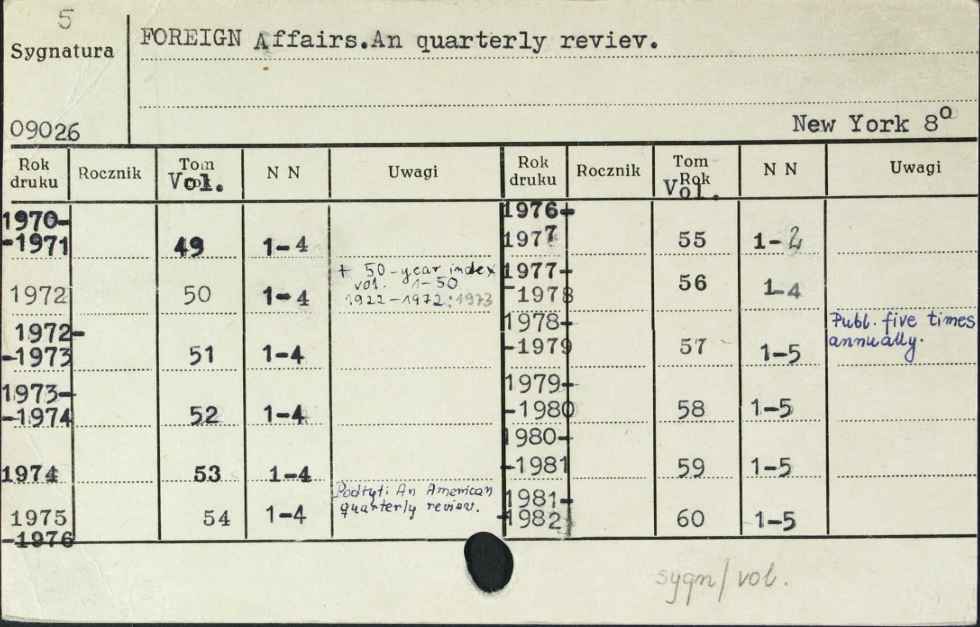 5
Sygnatura
FOREIGN Affairs.An quarterly reviev.
09026
New York 8º
Rok druku Rocznik Tom Vol. N N Uwagi Rok druku Rocznik Tom Rok Vol. N N Uwagi
1970-
-1971 49 1-4
1972 50 1-4 + 50-year index
vol. 1-50
1922-1972:1973
1972-
-1973 51 1-4
1973-
-1974 52 1-4
1974 53 1-4
1975
-1976 54 1-4 Podtyt: An American
quarterly review.
1976-
1977 55 1-2
1977-
-1978 56 1-4
1978-
-1979 57 1-5 Publ. five times
annually.
1979-
-1980 58 1-5
1980-
-1981 59 1-5
1981-
-1982 60 1-5
sygn/vol.